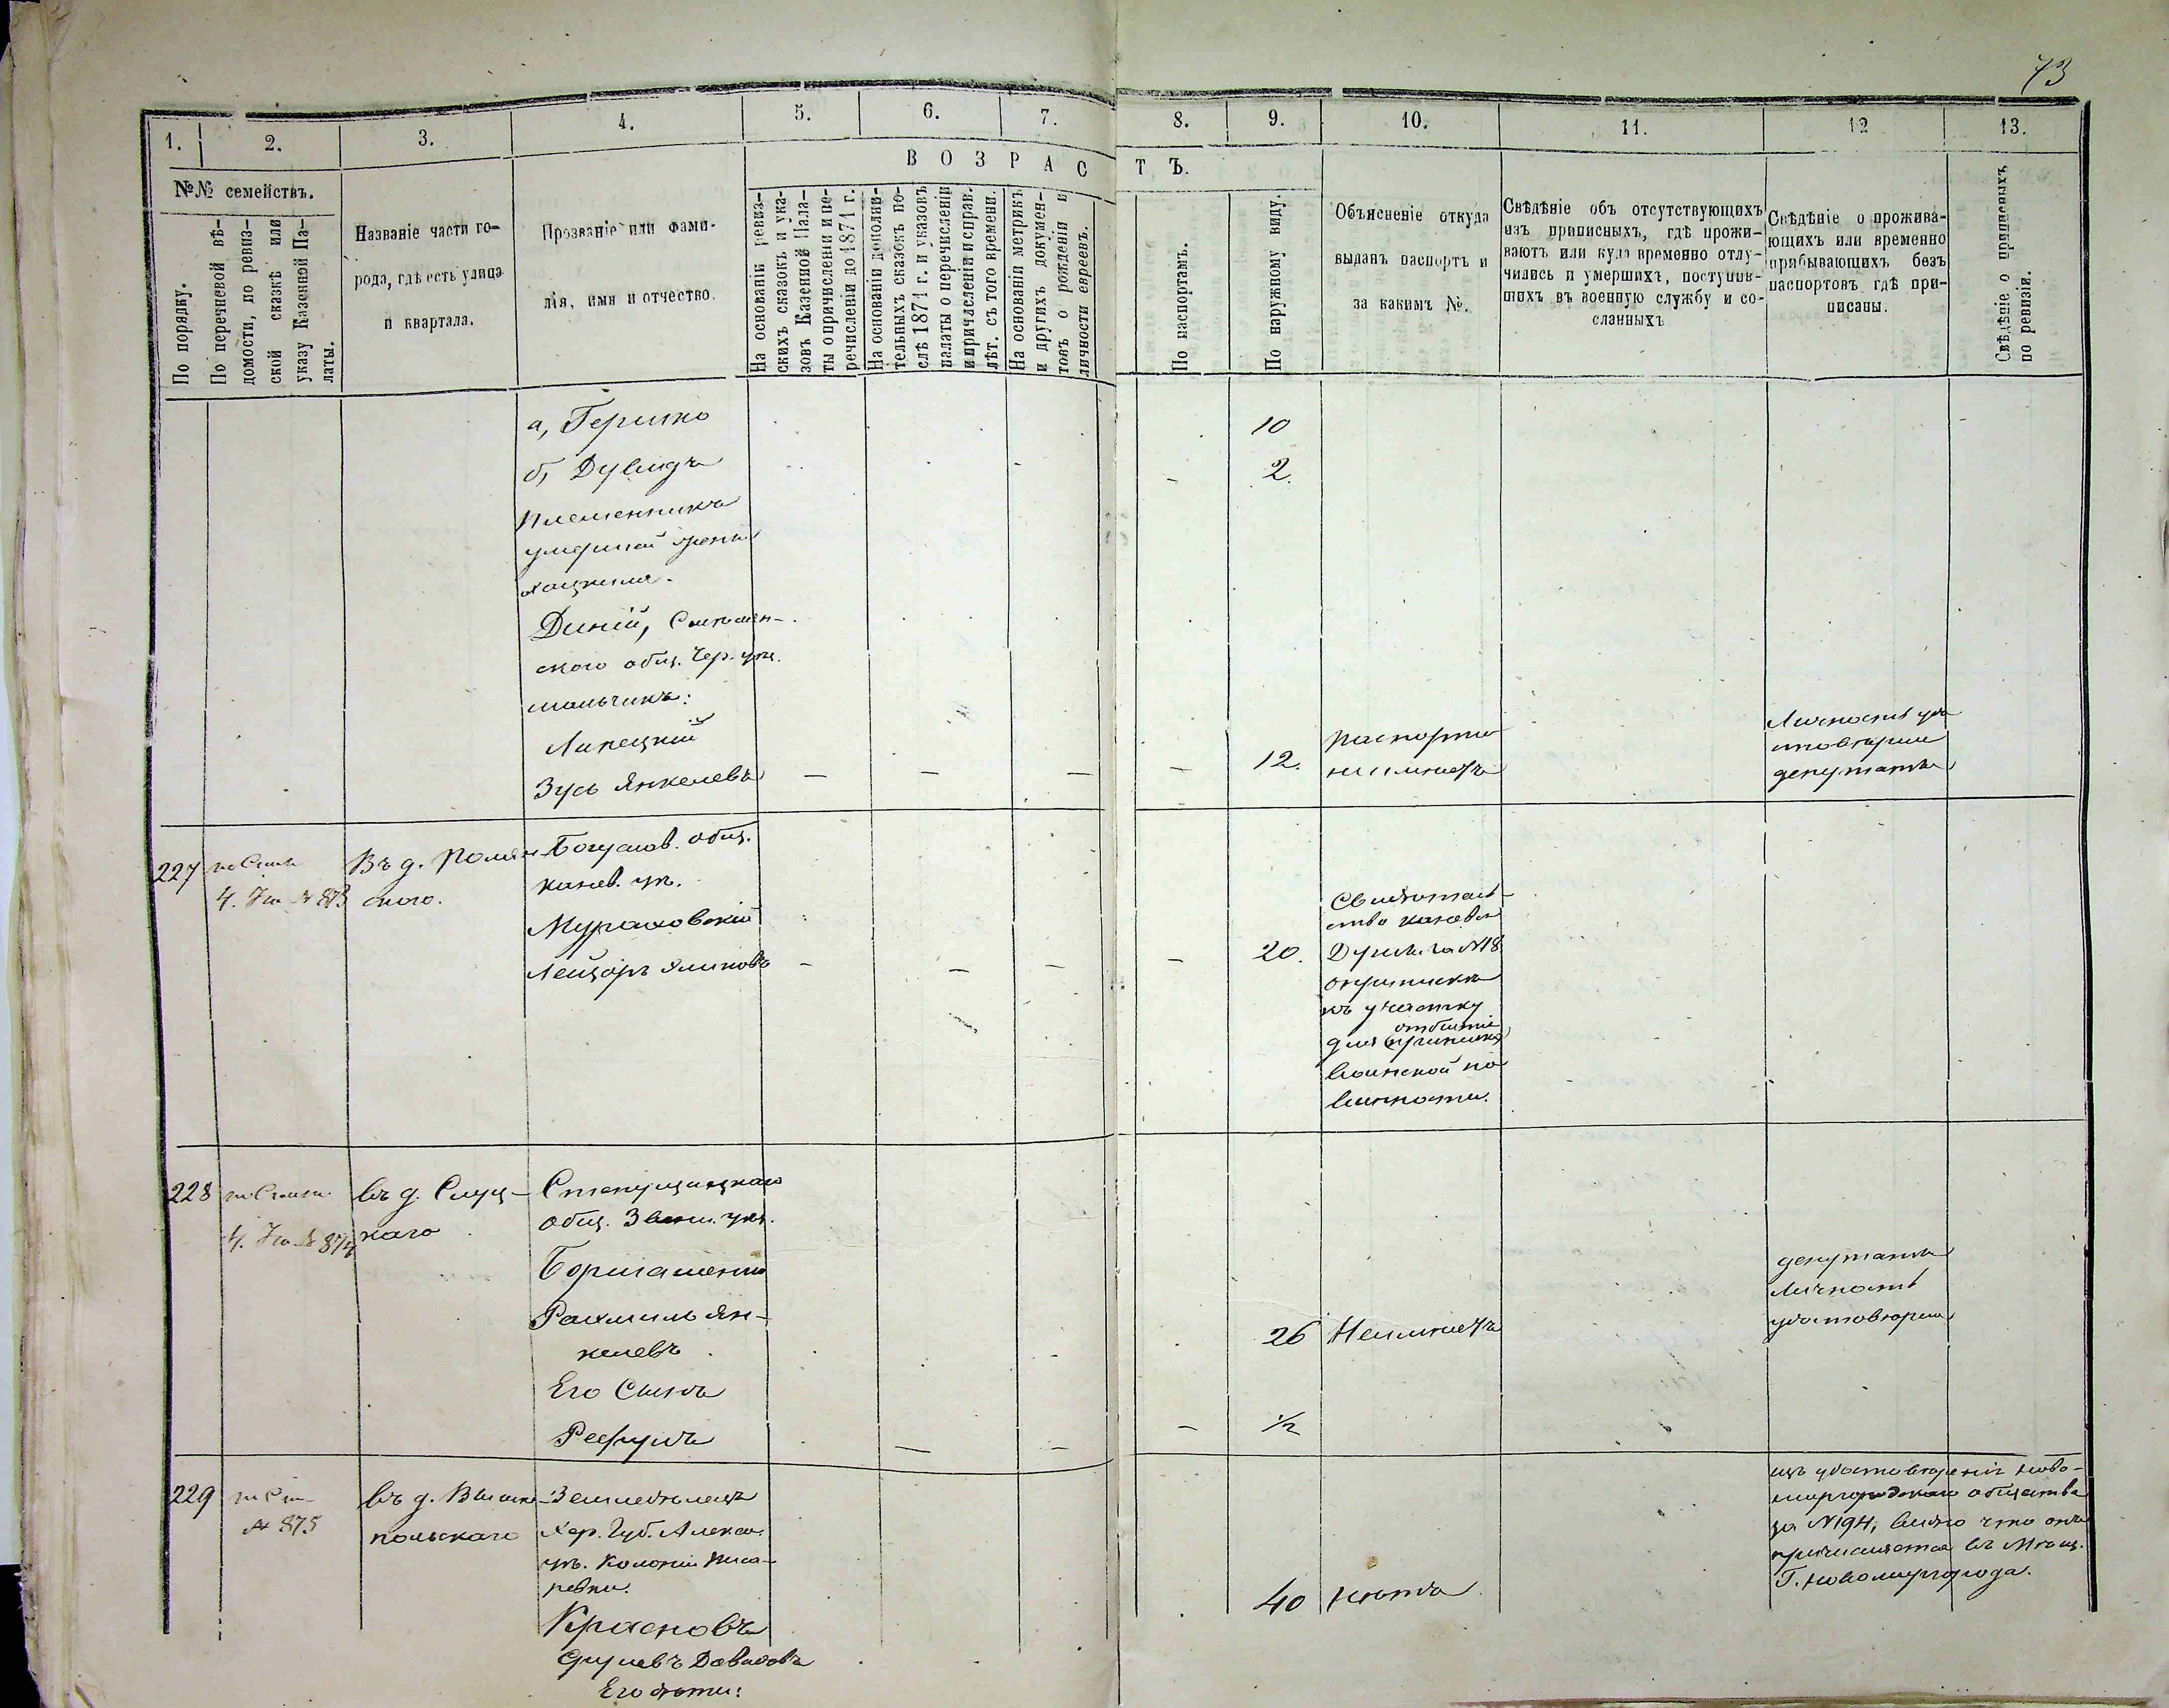 73
1. 2. 3. 4. 5. 6. 7. 8. 9. 10. 11. 12 13.
ВОЗРАСТЪ.
№№ семействъ.
По порядку.
По перечневой вѣ-
домости, по ревиз-
ской сказкѣ или
указу Казенной Па-
латы.
Названіе части го-
рода, гдѣ есть улица
и квартала.
Прозваніе или фами-
лія, имя и отчество.
На основаніи ревиз-
скихъ сказокъ и ука-
зовъ Казенной Пала-
ты о причисленіи и пе-
речисленіи до 1871 г.
На основаніи дополни-
тельныхъ сказокъ по-
слѣ 1871 г. и указовъ
палаты о перечисленіи
и причисленіи и справ.
лѣт. съ того времени.
На основаніи метрикъ
и другихъ докумен-
товъ о рожденіи и
личности евреевъ.
По паспортамъ.
По наружному виду.
Объясненіе откуда
выданъ паспортъ и
за какимъ №.
Свѣдѣніе объ отсутствующихъ
изъ приписныхъ, гдѣ прожи-
ваютъ или куда временно отлу-
чились и умершихъ, поступив-
шихъ въ военную службу и со-
сланныхъ
Свѣдѣніе о прожива-
ющихъ или временно
прибывающихъ безъ
паспортовъ гдѣ при-
писаны.
Свѣдѣніе о приписныхъ
по ревизіи.
а, Гершко 10
б, Дувидъ - 2.
Племенникъ
умершей жены
Хацкеля.
общ. Чер. уѣз.
мальчикъ:
Липецкій
Зусь Янкелевъ — — — — 12.
Паспорта
не имѣетъ
Личность удо
стовѣрили
депутаты
227
4. № 873
Въ д. Полян-
ского.
Богуслав. общ.
канев. уѣ.
Мураховскій
Лейзоръ - — — — 20.
Свидѣтель-
ство каневск
за №18
о припискѣ
къ участку
для отбытія
воинской по
винности.
228
4. № 874
въ д. Слуц-
каго
общ. Звени. уѣз.
Рахмиль Ян-
келевъ 26 Неимѣетъ
депутаты
Личность
удостовѣрили
Его Сынъ
— — — ½
229
№ 875
въ д. Высоко-
польскаго
Земледѣлецъ
Хер. Губ. Алекса.
уѣ. Колоніи Иза-
ревки.
Красновъ 40 Нѣтъ
Давидовъ
Его дѣти:
изъ удостовѣренія Ново-
миргородскаго общества
за №194, видно что онъ
причисляется въ Мѣщ.
Г. Новомиргорода.